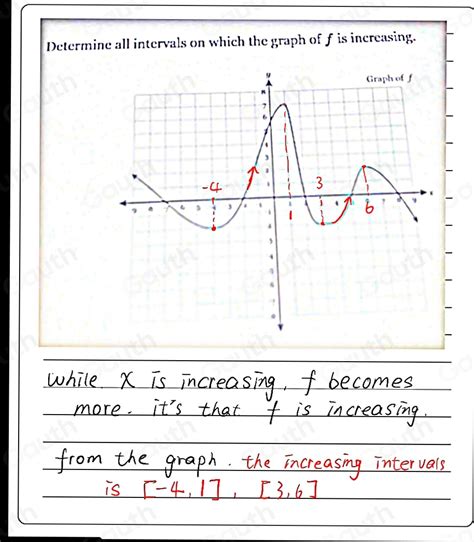 Determine all intervals on which the graph of f is increasing.
Graph of f
-4
3
1
6
while. x is increasing, f becomes
more. it's that f is increasing.
from the graph. the increasing intervals
is [-4,1], [3,6]